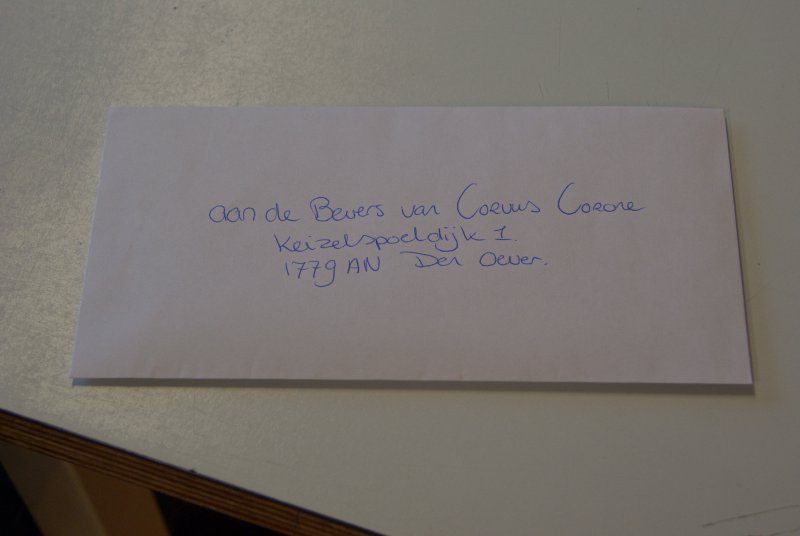 aan de Bevers van Corvus Corone
Keizelspoeldijk 1.
1779 AN Den Oever.